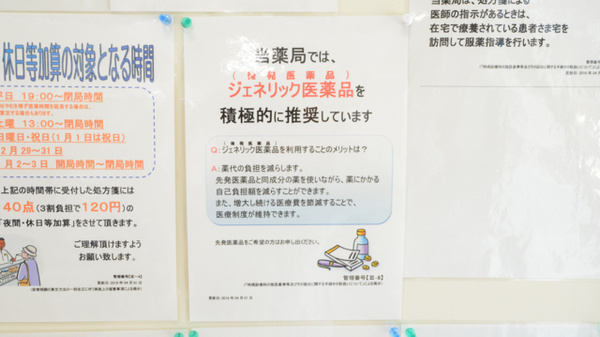 休日等加算の対象となる時間
平日 19:00〜閉局時間
土曜 13:00〜閉局時間
日曜日・祝日(1月1日は祝日)
12月29〜31日
1月2〜3日 開局時間〜閉局時間
上記の時間帯に受付した処方箋には
40点(3割負担で120円)の
「夜間・休日等加算」をさせて頂きます。
ご理解頂けますよう
お願い致します。
当薬局では、
(後発医薬品)
ジェネリック医薬品を
積極的に推奨しています
(後発医薬品)
Q:ジェネリック医薬品を利用することのメリットは?
A:薬代の負担を減らします。
先発医薬品と同成分の薬を使いながら、薬にかかる
自己負担額を減らすことができます。
また、増大し続ける医療費を節減することで、
医療制度が維持できます。
先発医薬品をご希望の方はお申し出ください。
当薬局は、処方箋による
医師の指示があるときは、
在宅で療養されている患者さま宅を
訪問して服薬指導を行います。